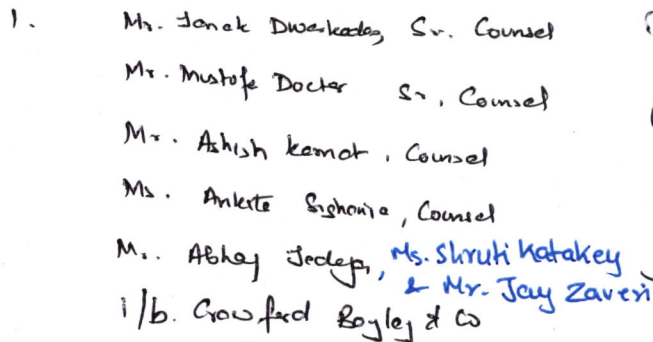 1. Mr. Janak Dwarkadas, Sr. Counsel
Mr. Mustafa Doctor Sr, Counsel
Mr. Ashish Kamat, Counsel
Ms. Ankita Singhania, Counsel
Mr. Abhay Jadeja, Ms. Shruti Katakey
& Mr. Jay Zaveri
i/b. Crawford Bayley & Co